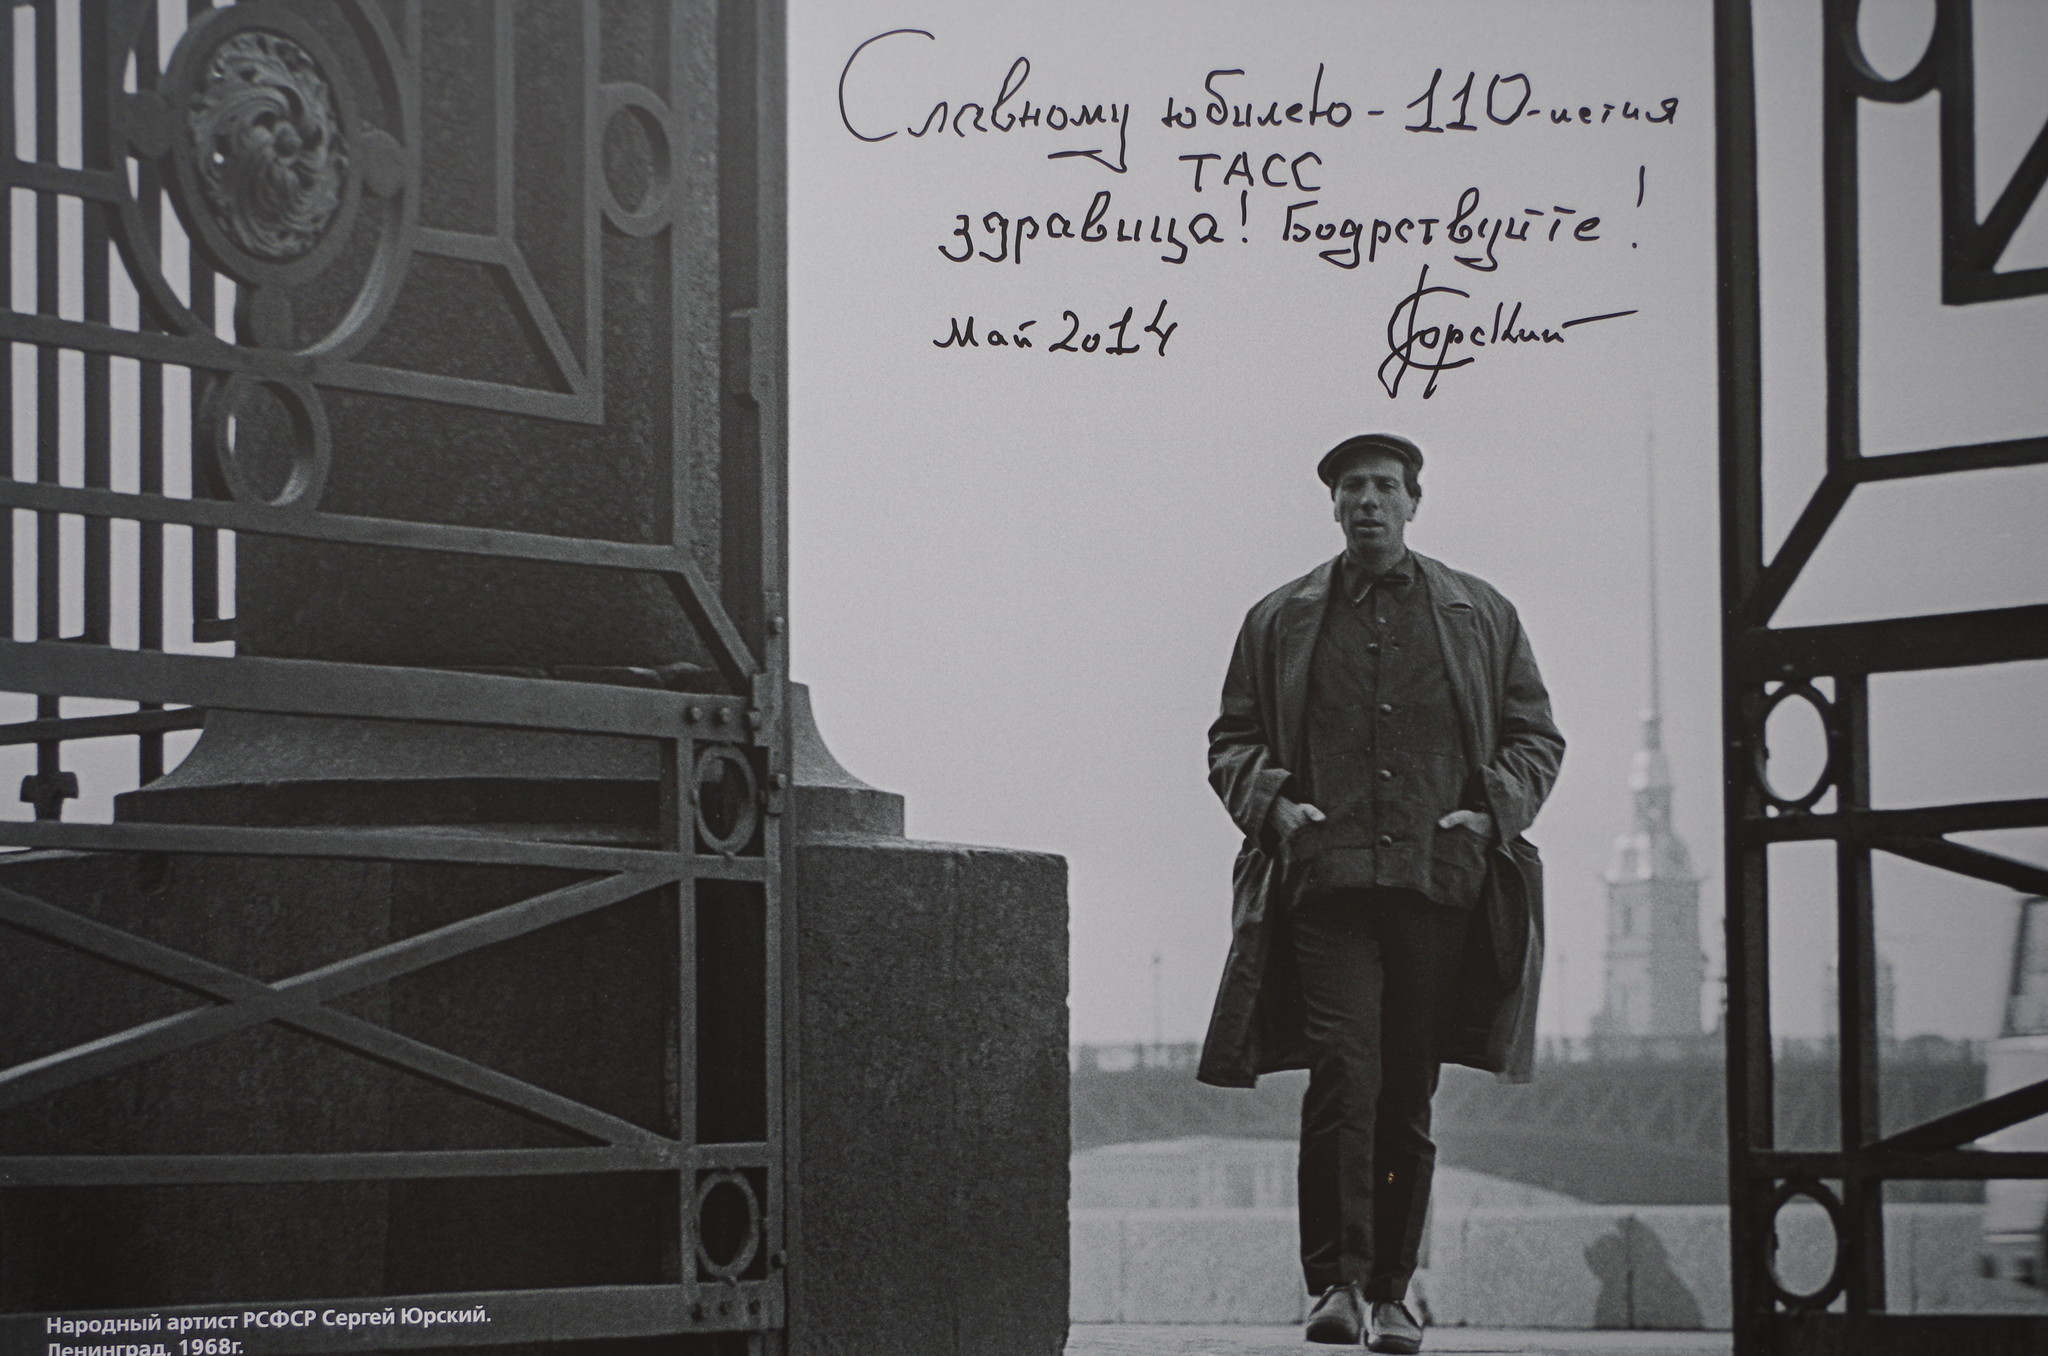 Славному юбилею - 110-летия
ТАСС
здравица! Бодрствуйте!
Май 2014 Юрский
Народный артист РСФСР Сергей Юрский.
Ленинград, 1968г.